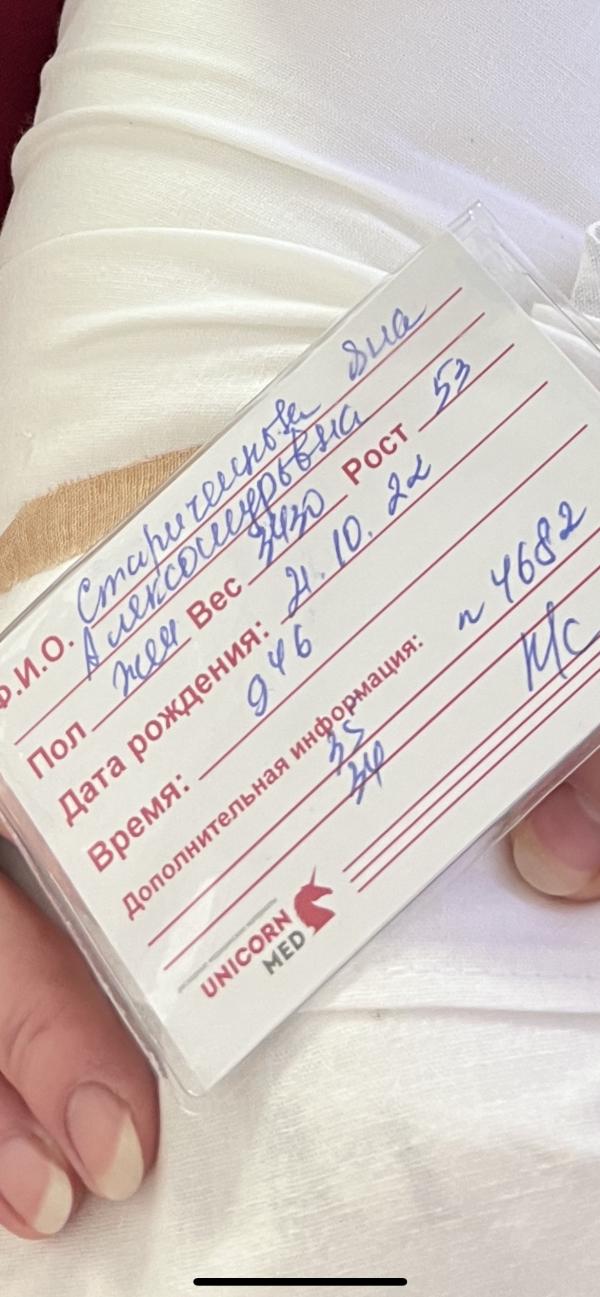 Ф.И.О. Стариченкова Яна
Александровна
Пол жен Вес 3430 Рост 53
Дата рождения: 21.10.22
Время: 946
Дополнительная информация: n 4682
35
34 М/с
UNICORN
MED